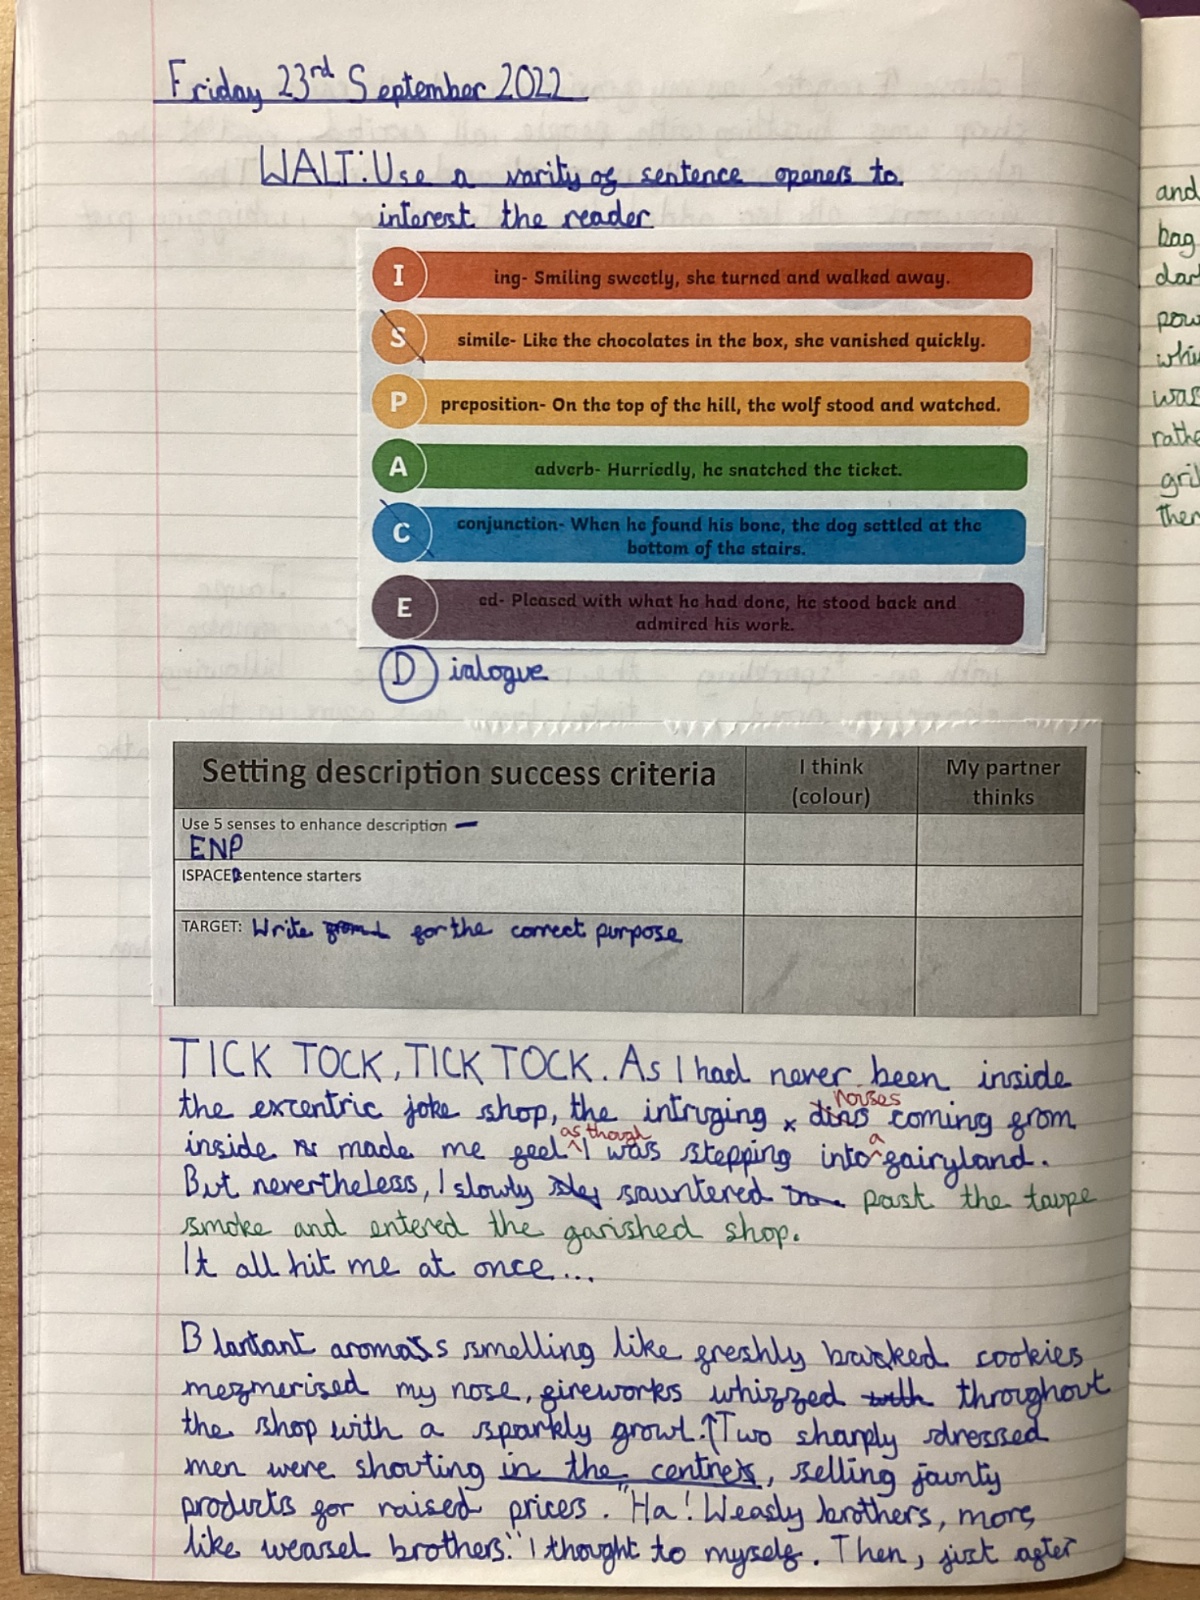 Friday 23rd September 2022
WALT: Use a varity of sentence openers to
interest the reader
I ing- Smiling sweetly, she turned and walked away.
S simile- Like the chocolates in the box, she vanished quickly.
P preposition- On the top of the hill, the wolf stood and watched.
A adverb- Hurriedly, he snatched the ticket.
C conjunction- When he found his bone, the dog settled at the
bottom of the stairs.
E ed- Pleased with what he had done, he stood back and
admired his work.
Dialogue
Setting description success criteria
I think
(colour)
My partner
thinks
Use 5 senses to enhance description –
ENP
ISPACED sentence starters
TARGET: Write for the correct purpose
TICK TOCK, TICK TOCK. As I had never been inside
noises
the excentric joke shop, the intruging x dins coming from
as though a
inside made me feel I was stepping into fairyland.
But nevertheless, I slowly sauntered past the taupe
smoke and entered the garished shop.
It all hit me at once...
Blantant aromas smelling like freshly backed cookies
mezmerised my nose, fireworks whizzed throughout
the shop with a sparkly growl. Two sharply dressed
men were shouting in the centre, selling jaunty
products for raised prices. "Ha! Weasly brothers, more
like weasel brothers." I thought to myself. Then, just after
and
bag
dar
pow
whi
was
rathe
gril
then